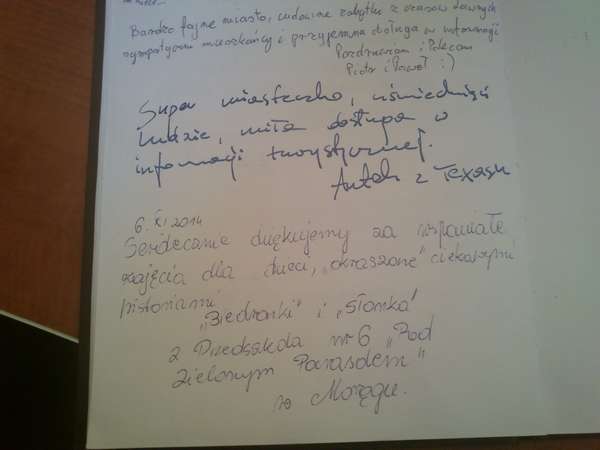 Bardzo fajne miasto, cudowne zabytki z czasów dawnych
sympatyczni mieszkańcy i przyjemna obsługa w informacji
Pozdrawiam i Polecam
Piotr i Paweł :)
Super miasteczko, uśmiechnięci
ludzie, miła obsługa w
informacji turystycznej.
Antek z Texasu
6.XI.2014
Serdecznie dziękujemy za wspaniałe
zajęcia dla dzieci, „okraszone" ciekawymi
historiami
„Biedronki" i „Słonka"
z Przedszkola nr 6 „Pod
Zielonym Parasolem"
w Morągu.